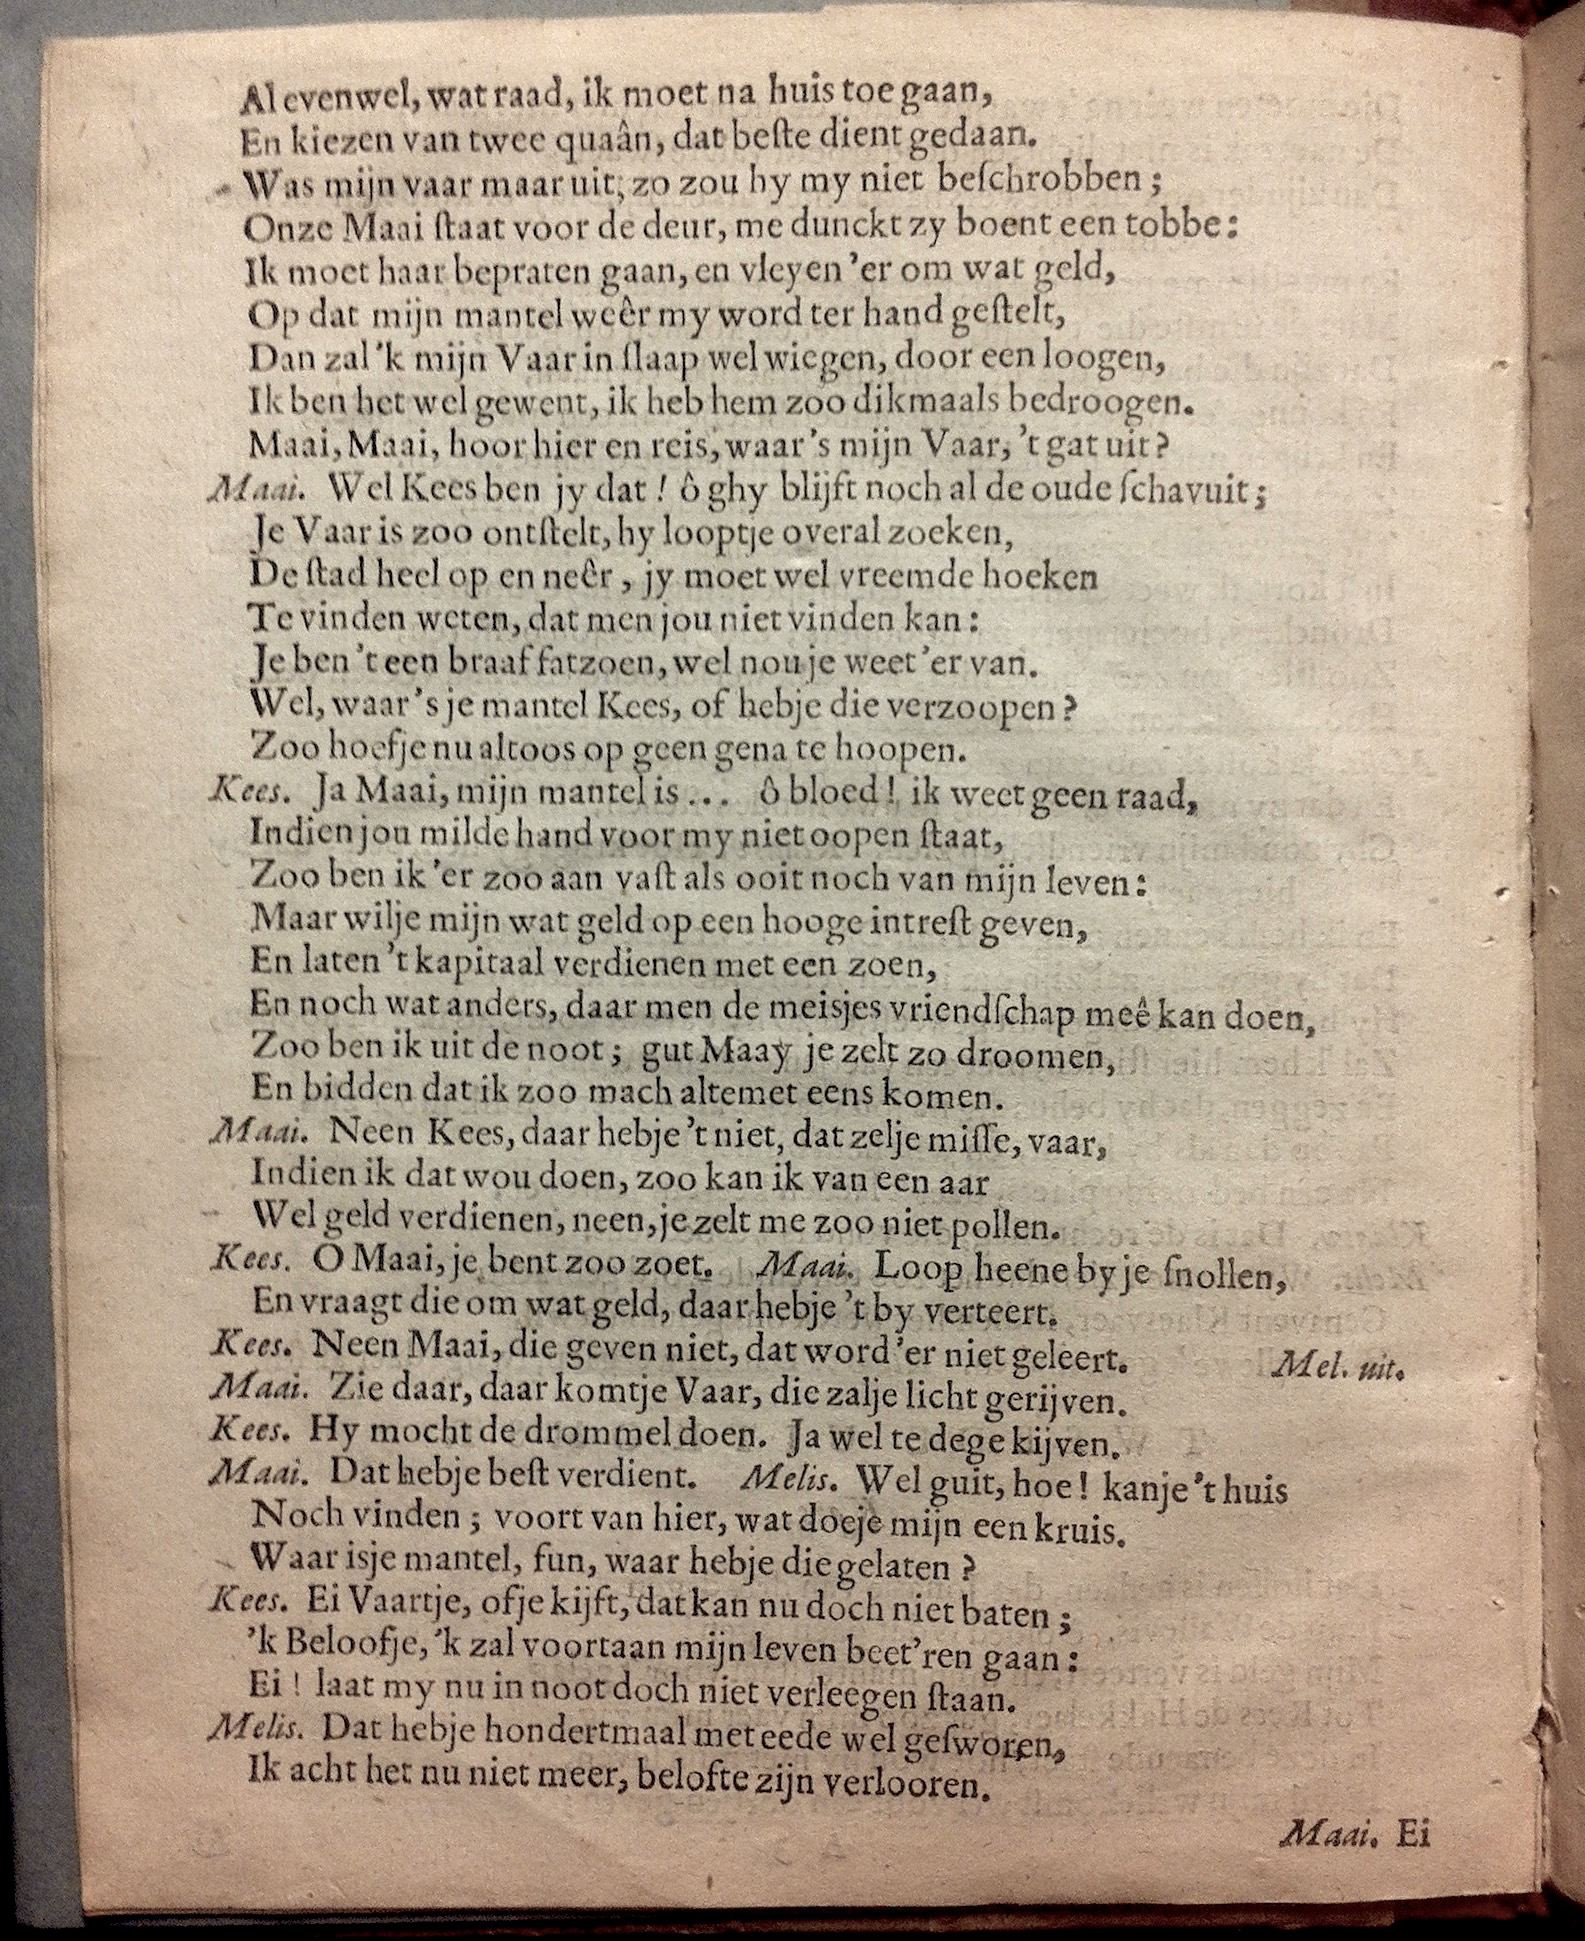 Al evenwel, wat raad, ik moet na huis toe gaan,
En kiezen van twee quaân, dat beſte dient gedaan.
Was mijn vaar maar uit, zo zou hy my niet beſchrobben;
Onze Maai ſtaat voor de deur, me dunckt zy boent een tobbe:
Ik moet haar bepraten gaan, en vleyen 'er om wat geld,
Op dat mijn mantel weêr my word ter hand geſtelt,
Dan zal 'k mijn Vaar in ſlaap wel wiegen, door een loogen,
Ik ben het wel gewent, ik heb hem zoo dikmaals bedroogen.
Maai, Maai, hoor hier en reis, waar's mijn Vaar, 't gat uit?
Maai. Wel Kees ben jy dat! ô ghy blijft noch al de oude ſchavuit;
Je Vaar is zoo ontſtelt, hy looptje overal zoeken,
De ſtad heel op en neêr, jy moet wel vreemde hoeken
Te vinden weten, dat men jou niet vinden kan:
Je ben 't een braaf fatzoen, wel nou je weet 'er van.
Wel, waar's je mantel Kees, of hebje die verzoopen?
Zoo hoefje nu altoos op geen gena te hoopen.
Kees. Ja Maai, mijn mantel is... ô bloed! ik weet geen raad,
Indien jou milde hand voor my niet oopen ſtaat,
Zoo ben ik 'er zoo aan vaſt als ooit noch van mijn leven:
Maar wilje mijn wat geld op een hooge intreſt geven,
En laten 't kapitaal verdienen met een zoen,
En noch wat anders, daar men de meisjes vriendſchap meê kan doen,
Zoo ben ik uit de noot; gut Maay je zelt zo droomen,
En bidden dat ik zoo mach altemet eens komen.
Maai. Neen Kees, daar hebje 't niet, dat zelje miſſe, vaar,
Indien ik dat wou doen, zoo kan ik van een aar
Wel geld verdienen, neen, je zelt me zoo niet pollen.
Kees. O Maai, je bent zoo zoet. Maai. Loop heene by je ſnollen,
En vraagt die om wat geld, daar hebje 't by verteert.
Kees. Neen Maai, die geven niet, dat word 'er niet geleert. Mel. uit.
Maai. Zie daar, daar komtje Vaar, die zalje licht gerijven.
Kees. Hy mocht de drommel doen. Ja wel te dege kijven.
Maai. Dat hebje beſt verdient. Melis. Wel guit, hoe! kanje 't huis
Noch vinden; voort van hier, wat doeje mijn een kruis.
Waar isje mantel, fun, waar hebje die gelaten?
Kees. Ei Vaartje, ofje kijft, dat kan nu doch niet baten;
'k Beloofje, 'k zal voortaan mijn leven beet'ren gaan:
Ei! laat my nu in noot doch niet verleegen ſtaan.
Melis. Dat hebje hondertmaal met eede wel geſworen,
Ik acht het nu niet meer, belofte zijn verlooren.
Maai. Ei